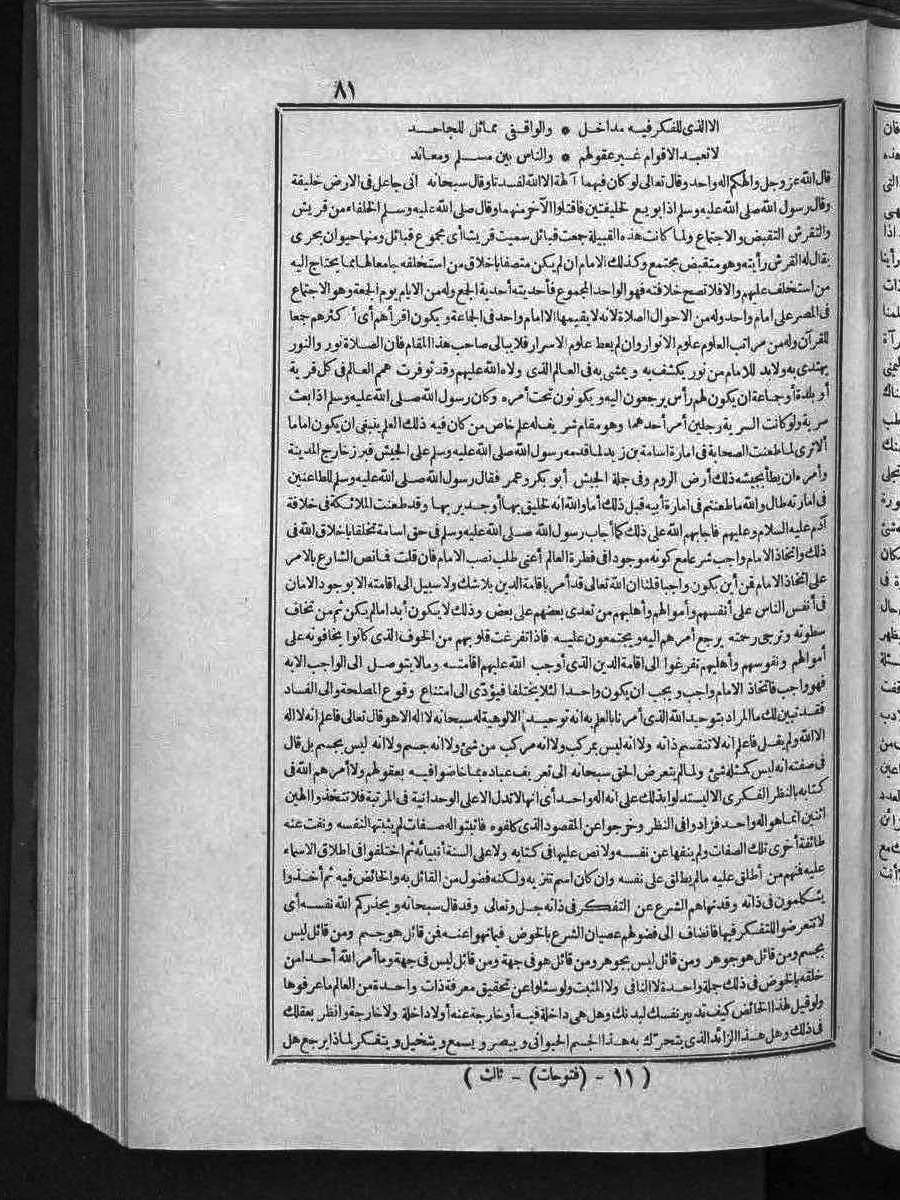 ٨١
الا الذى للفكر فيه مداخل * والواقفى مماثل للجاحد
لا تعبد الاقوام غير عقولهم * والناس بين مسلم ومعاند
قال الله عز وجل والهكم اله واحد وقال تعالى لو كان فيهما آلهة الا الله لفسدتا وقال سبحانه انى جاعل فى الارض خليفة
وقال رسول الله صلى الله عليه وسلم اذا بويع لخليفتين فاقتلوا الآخر منهما وقال صلى الله عليه وسلم الخلفاء من قريش
والتقرش التقبض والاجتماع ولما كانت هذه القبيلة جمعت قبائل سميت قريشا أى مجموع قبائل ومنها حيوان بحرى
يقال له القرش رأيته وهو متقبض مجتمع وكذلك الامام ان لم يكن متصفا باخلاق من استخلفه جامعا لها مما يحتاج اليه
من استخلف عليهم والا فلا تصح خلافته فهو الواحد المجموع فأحديته أحدية الجمع وله من الايام يوم الجمعة وهو الاجتماع
فى المصر على امام واحد وله من الاحوال الصلاة لانه لا يقيمها الا امام واحد فى الجماعة ويكون اقرأهم أى أكثرهم جمعا
للقرآن وله من مراتب العلوم علوم الانوار وان لم يعط علوم الاسرار فلا يبالى صاحب هذا المقام فان الصلاة نور والنور
يهتدى به ولا بد للامام من نور يكشف به ويمشى به فى العالم الذى ولاه الله عليهم وقد توفرت همم العالم فى كل قرية
أو بلدة أو جماعة ان يكون لهم رأس يرجعون اليه ويكونون تحت أمره وكان رسول الله صلى الله عليه وسلم اذا بعث
سرية ولو كانت السرية رجلين أمر أحدهما وهو مقام شريف له علم خاص من كان فيه ذلك العلم ينبغى ان يكون اماما
ألا ترى لما طعنت الصحابة فى امارة اسامة بن زيد لما قدمه رسول الله صلى الله عليه وسلم على الجيش فبرز خارج المدينة
وأمره ان يطأ بجيشه ذلك أرض الروم وفى جملة الجيش أبو بكر وعمر فقال رسول الله صلى الله عليه وسلم للطاعنين
فى امارته طال والله ما طعنتم فى امارة أبيه قبل ذلك أما والله انه لخليق بها أو جدير بها وقد طعنت الملائكة فى خلافة
آدم عليه السلام وعليهم فاجابهم الله على ذلك كما أجاب رسول الله صلى الله عليه وسلم فى حق اسامة تخلقا باخلاق الله فى
ذلك واتخاذ الامام واجب شرعا مع كونه موجودا فى فطرة العالم أعنى طلب نصب الامام فان قلت فما نص الشارع بالامر
على اتخاذ الامام فمن أين يكون واجبا قلنا ان الله تعالى قد أمر باقامة الدين بلا شك ولا سبيل الى اقامته الا بوجود الامان
فى أنفس الناس على أنفسهم وأموالهم وأهليهم من تعدى بعضهم على بعض وذلك لا يكون أبدا ما لم يكن ثم من تخاف
سطوته وترجى رحمته يرجع أمرهم اليه ويجتمعون عليه فاذا تفرغت قلوبهم من الخوف الذى كانوا يخافونه على
أموالهم ونفوسهم وأهليهم تفرغوا الى اقامة الدين الذى أوجب الله عليهم اقامته وما لا يتوصل الى الواجب الا به
فهو واجب فاتخاذ الامام واجب ويجب ان يكون واحدا لئلا يختلفا فيؤدى الى امتناع وقوع المصلحة والى الفساد
فقد تبين لك ما المراد بتوحيد الله الذى أمرنا بالعلم به انه توحيد الالوهية له سبحانه لا اله الا هو قال تعالى فاعلم انه لا اله
الا الله ولم يقل فاعلم انه لا تنقسم ذاته ولا انه ليس بمركب ولا انه مركب من شئ ولا انه جسم ولا انه ليس بجسم بل قال
فى صفته انه ليس كمثله شئ ولما لم يتعرض الحق سبحانه الى تعريف عباده بما خاضوا فيه بعقولهم ولا أمرهم الله فى
كتابه بالنظر الفكرى الا ليستدلوا بذلك على انه اله واحد أى انها لا تدل الا على الوحدانية فى المرتبة فلا تتخذوا الهين
اثنين انما هو اله واحد فزادوا فى النظر وخرجوا عن المقصود الذى كلفوه فاثبتوا له صفات لم يثبتها لنفسه ونفت عنه
طائفة أخرى تلك الصفات ولم ينفها عن نفسه ولا نص عليها فى كتابه ولا على السنة أنبيائه ثم اختلفوا فى اطلاق الاسماء
عليه فمنهم من أطلق عليه ما لم يطلق على نفسه وان كان اسم تنزيه ولكنه فضول من القائل به والخائض فيه ثم أخذوا
يتكلمون فى ذاته وقد نهاهم الشرع عن التفكر فى ذاته جل وتعالى وقد قال سبحانه ويحذركم الله نفسه أى
لا تتعرضوا للتفكر فيها فانضاف الى فضولهم عصيان الشرع بالخوض فيما نهوا عنه فمن قائل هو جسم ومن قائل ليس
بجسم ومن قائل هو جوهر ومن قائل ليس بجوهر ومن قائل هو فى جهة ومن قائل ليس فى جهة وما أمر الله أحدا من
خلقه بالخوض فى ذلك جملة واحدة لا النافى ولا المثبت ولو سئلوا عن تحقيق معرفة ذات واحدة من العالم ما عرفوها
ولو قيل لهذا الخائض كيف تدبير نفسك لبدنك وهل هى داخلة فيه أو خارجة عنه أو لا داخلة ولا خارجة وانظر بعقلك
فى ذلك وهل هذا الزائد الذى يتحرك به هذا الجسم الحيوانى ويبصر ويسمع ويتخيل ويتفكر لماذا يرجع هل
( ١١ - (فتوحات) - ثالث )